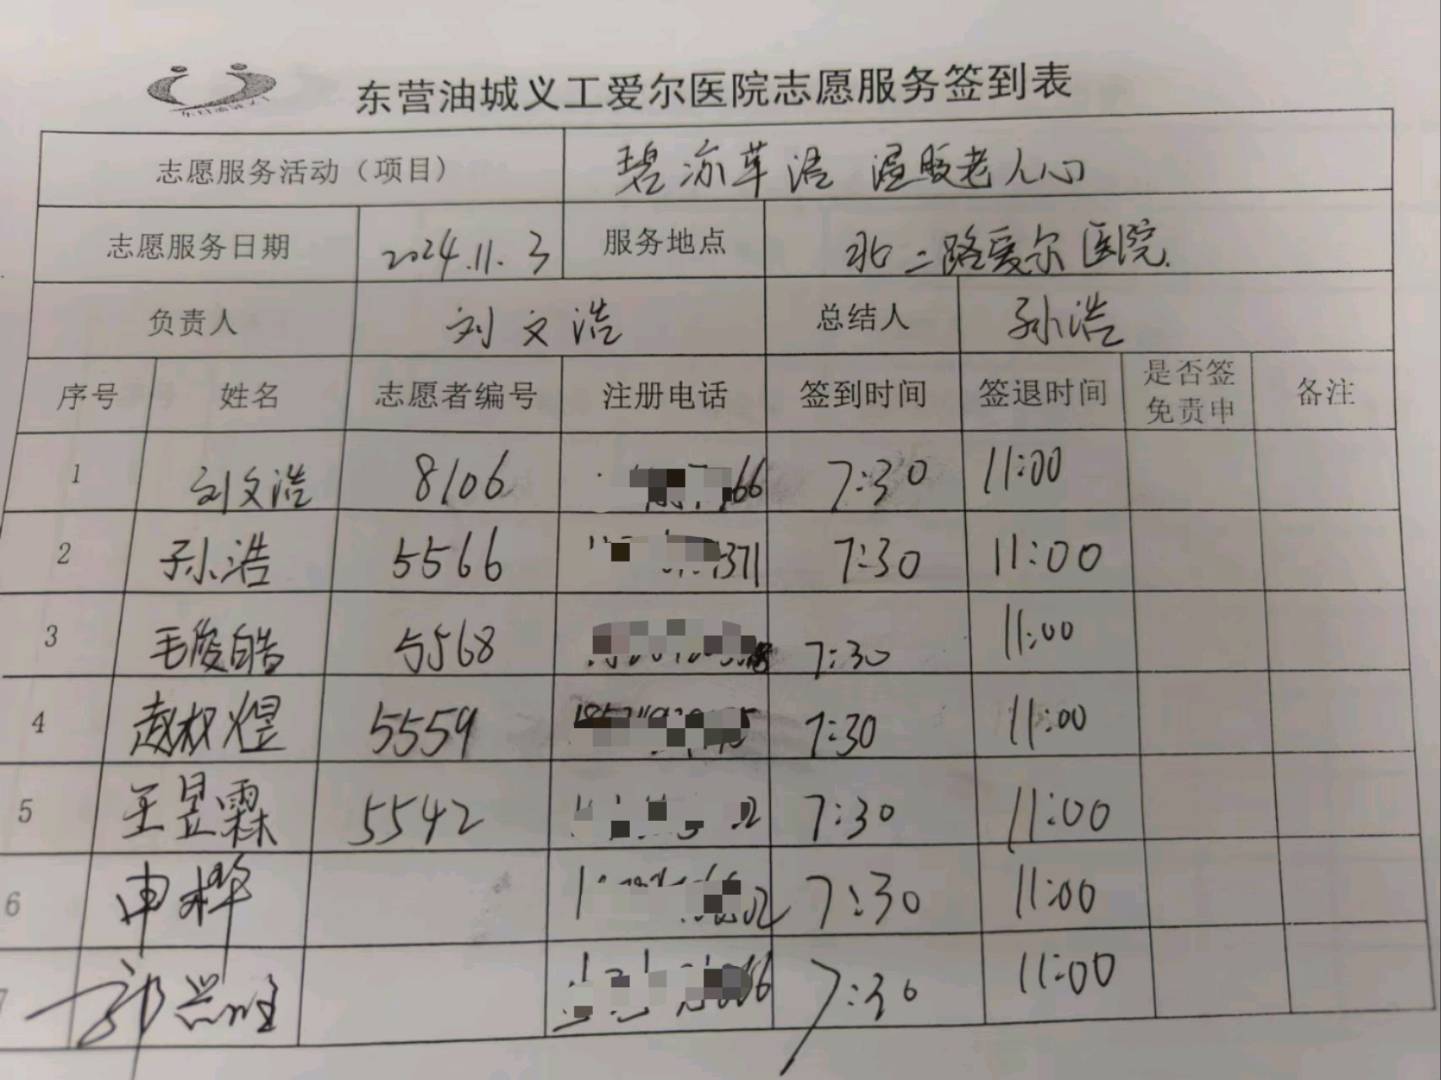 东营油城义工爱尔医院志愿服务签到表
志愿服务活动（项目） 碧水莘活 温暖老人心
志愿服务日期 2024.11.3 服务地点 北二路爱尔医院
负责人 刘文浩 总结人 孙浩
序号 姓名 志愿者编号 注册电话 签到时间 签退时间 是否签免责申 备注
1 刘文浩 8106 66 7:30 11:00
2 孙浩 5566 371 7:30 11:00
3 毛俊皓 5568 7:30 11:00
4 赵权煜 5559 7:30 11:00
5 王昱霖 5542 7:30 11:00
6 申桦 7:30 11:00
7 郭 7:30 11:00